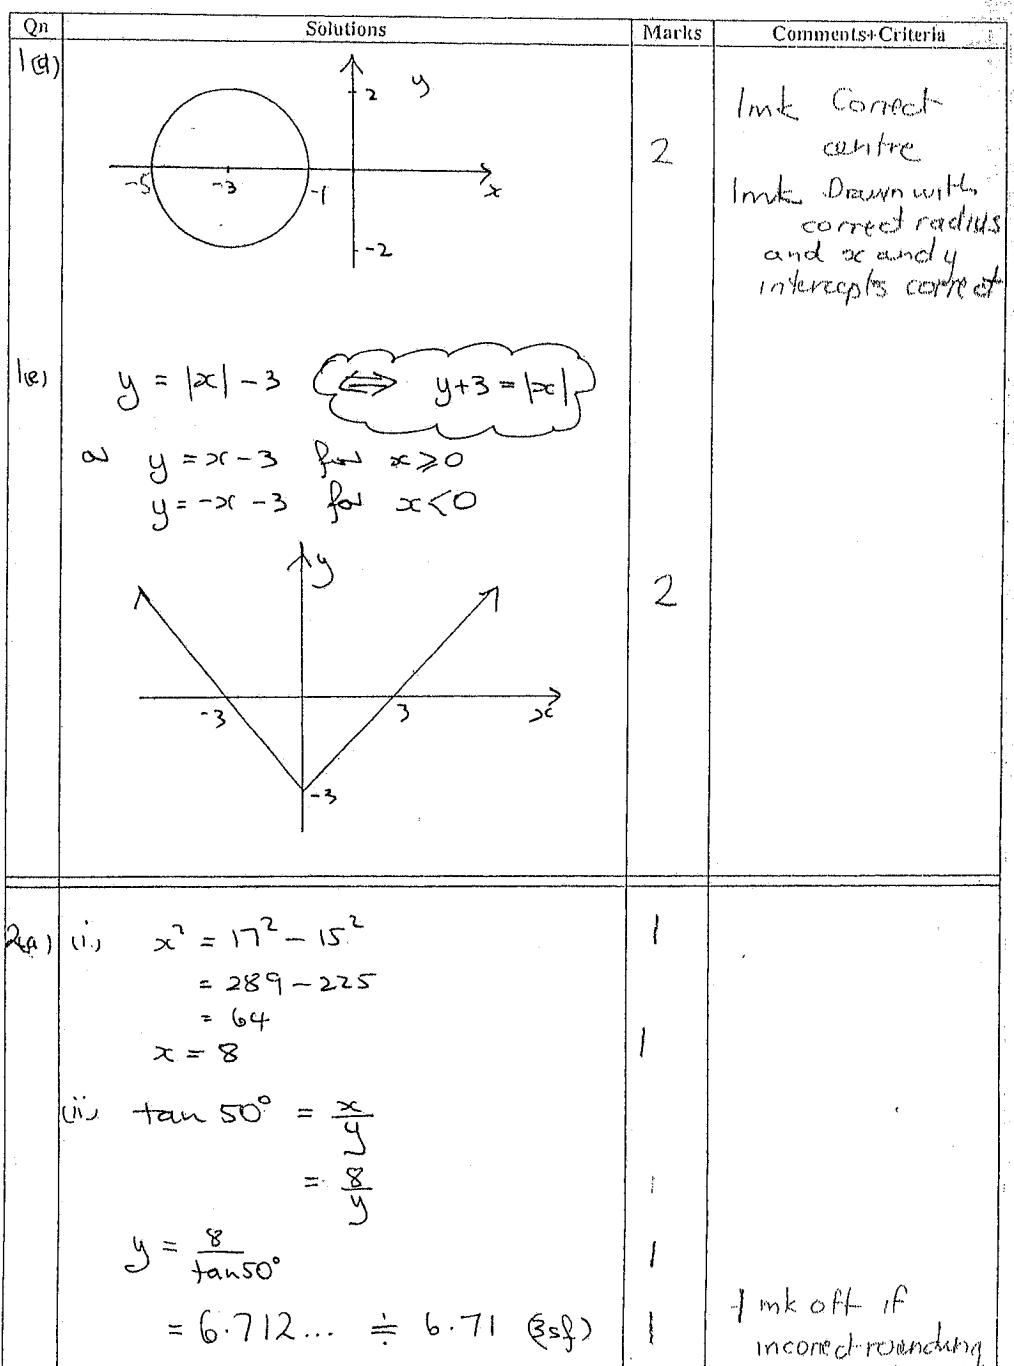 Qn Solutions Marks Comments+Criteria
1(d)
y
2
-5 -3 -1 x
-2
2
1mk Correct
centre
1mk Drawn with
correct radius
and x and y
intercepts correct
1(e) y = |x| - 3 ⟺ y+3 = |x|
or y = x - 3 for x ≥ 0
y = -x - 3 for x < 0
y
2
-3 3 x
-3
2(a) (i) x² = 17² - 15² 1
= 289 - 225
= 64
x = 8 1
(ii) tan 50° = x/y
= 8/y 1
y = 8/tan50° 1
= 6.712... ≑ 6.71 (3sf) 1
1 mk off if
incorrect rounding